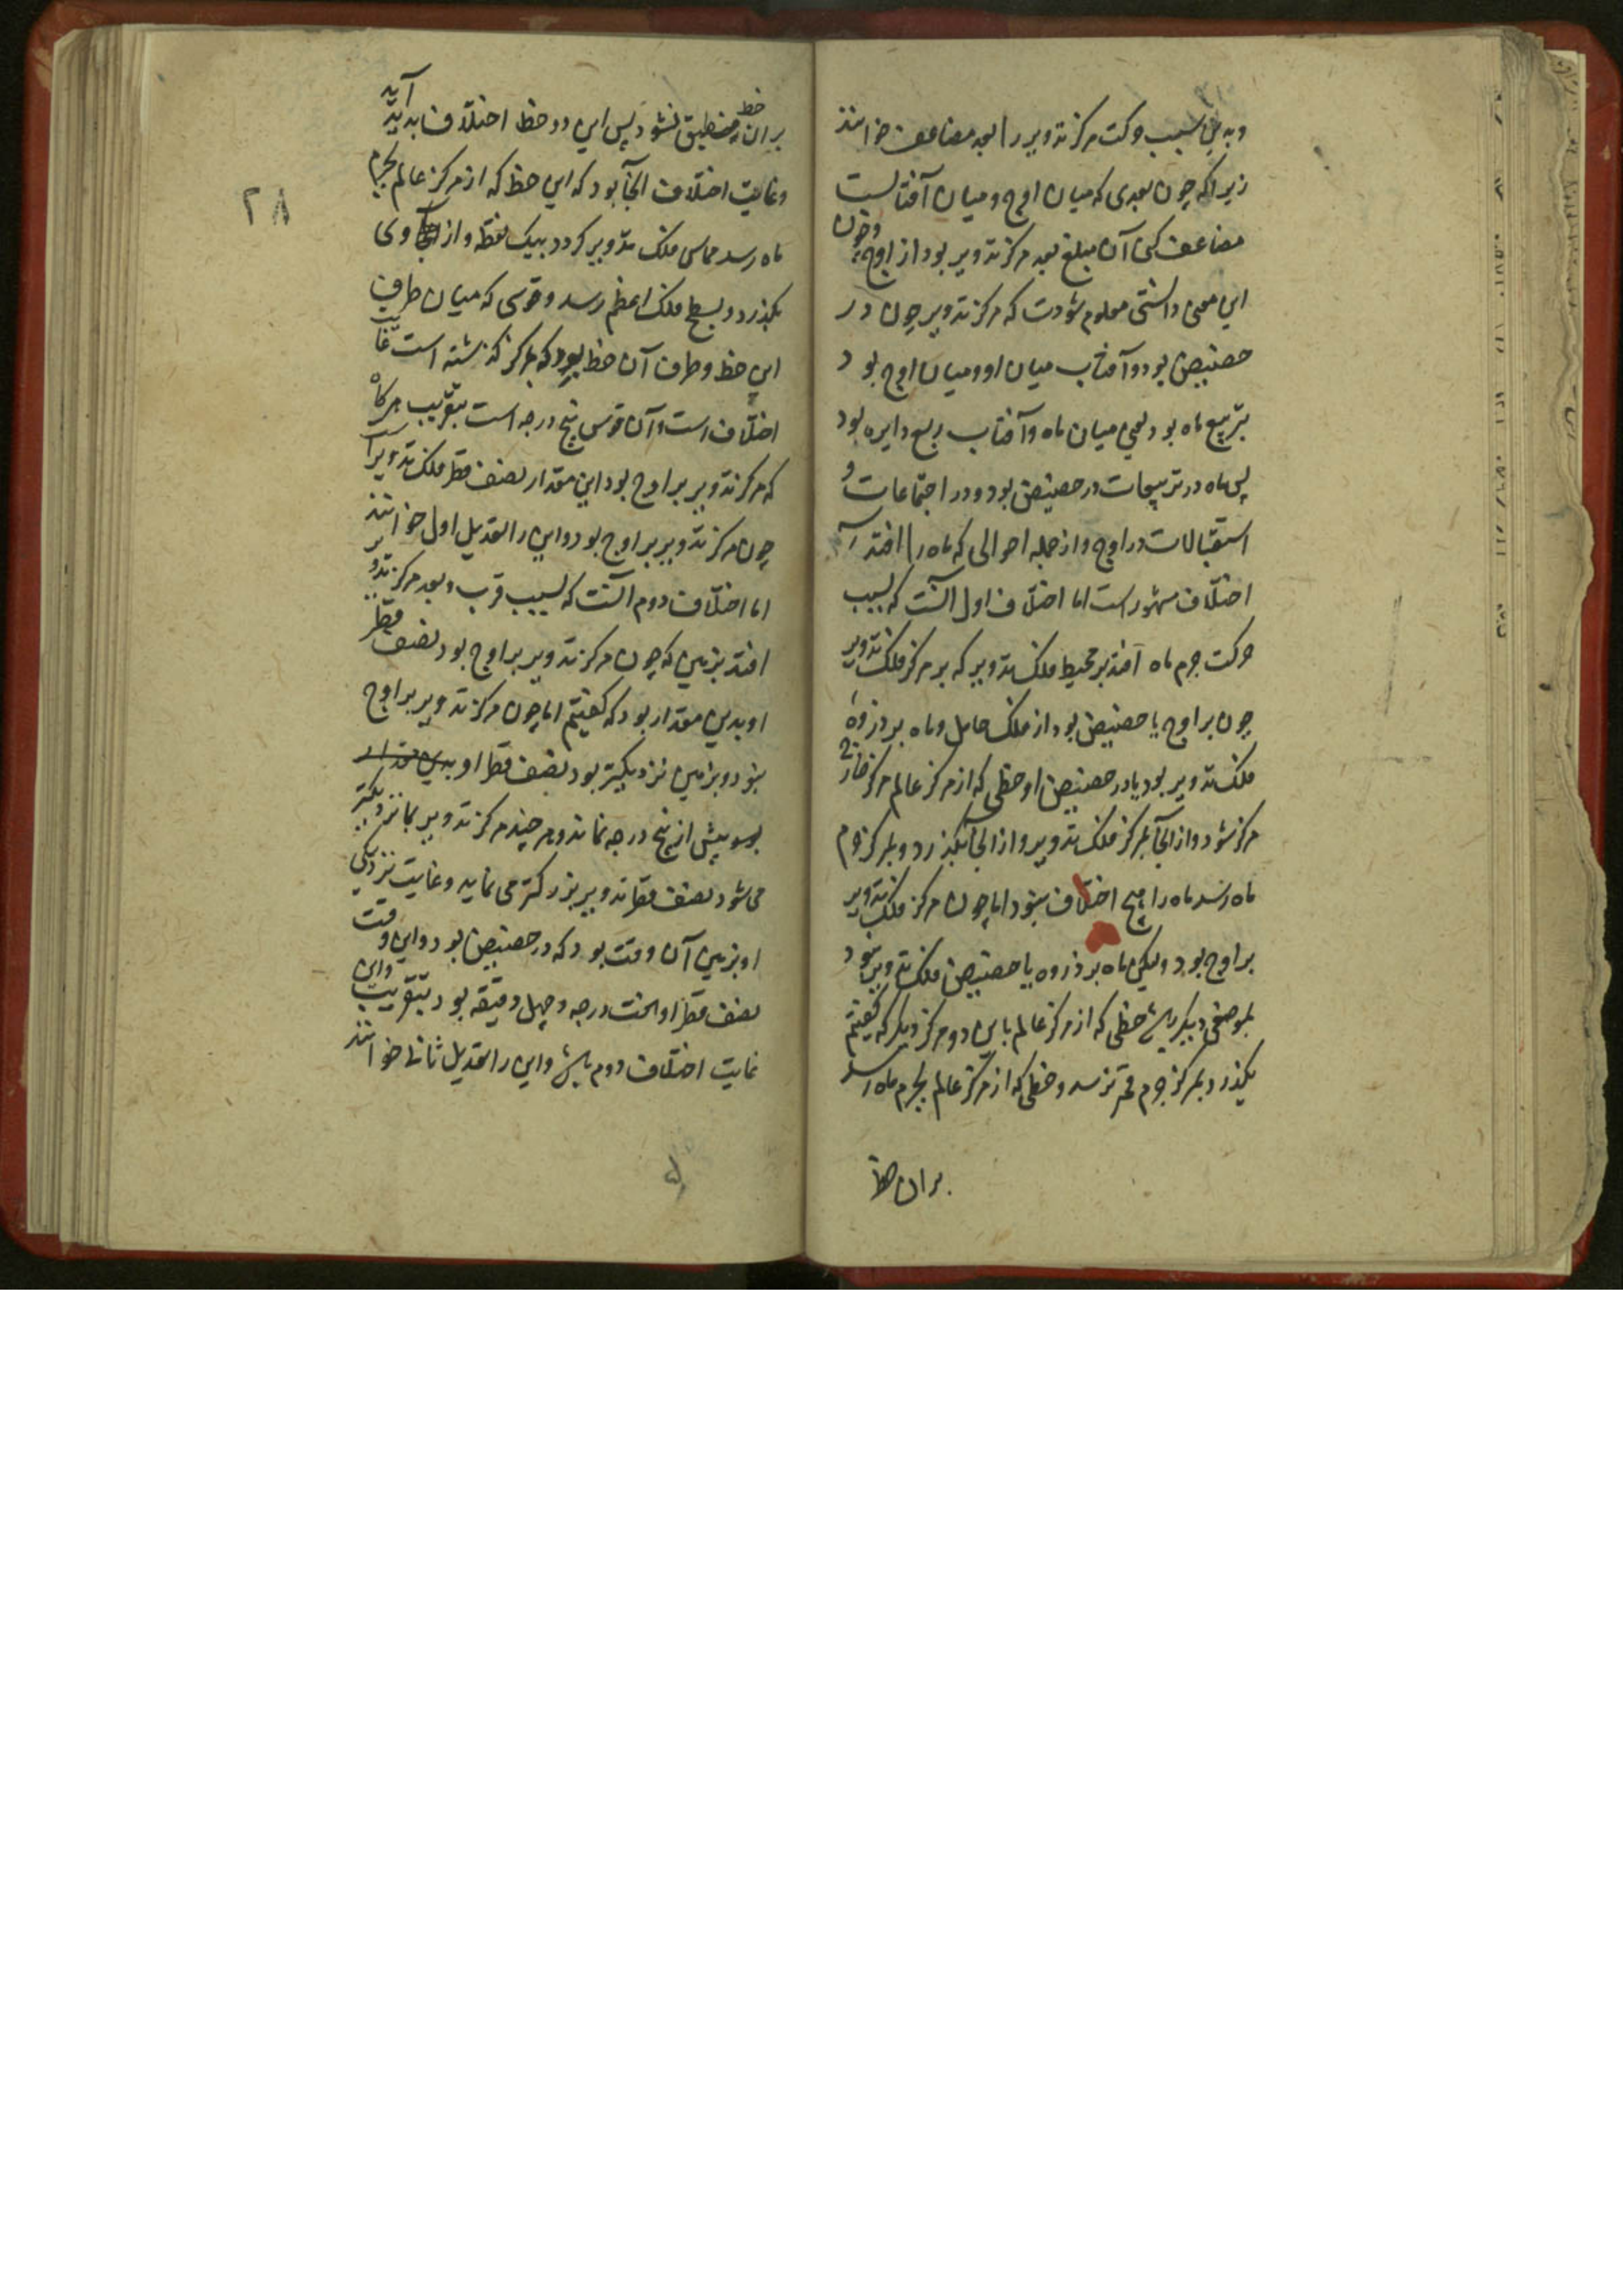 وبدین سبب حرکت مرکز تدویر را بعد مضاعف خوانند
زیراکه چون بعدی که میان اوج و میان آفتابست
مضاعف کنی آن مبلغ بعد مرکز تدویر بود از اوج و چون
این معنی دانستی معلوم شودت که مرکز تدویر چون در
حضیض بود و آفتاب میان او و میان اوج بود
تربیع ماه بود یعنی میان ماه و آفتاب ربع دایره بود
پس ماه در تربیعات در حضیض بود و در اجتماعات و
استقبالات در اوج و از جمله احوالی که ماه را افتد
اختلاف مشهور است اما اختلاف اول آنست که بسبب
حرکت جرم ماه افتد بر محیط فلک تدویر که بر مرکز فلک تدویر
چون بر اوج یا حضیض بود از فلک حامل و ماه بر ذروه
فلک تدویر بود یا در حضیض او خطی که از مرکز عالم مرکز خارج
مرکز شود و از آنجا بمرکز فلک تدویر و از آنجا بگذرد و بمرکز جرم
ماه رسد ماه را هیچ اختلاف نبود اما چون مرکز فلک تدویر
بر اوج بود ولیکن ماه بر ذروه یا حضیض فلک تدویر نبود
بموضعی دیگر باشد خطی که از مرکز عالم باین دو مرکز دیگر که گفتیم
بگذرد بمرکز جرم قمر نرسد و خطی که از مرکز عالم بجرم ماه رسد
بران خط
۲۸
بران خط منطبق نشود پس این دو خط اختلاف پدید آید
و غایت اختلاف آنجا بود که این خط که از مرکز عالم بجرم
ماه رسد مماس فلک تدویر گردد بیک نقطه و از وی
بگذرد و بسطح فلک اعظم رسد و قوسی که میان طرف
این خط و طرف آن خط بود که بمرکز گذشته است غایت
اختلاف است و آن قوس پنج درجه است بتقریب هرگاه
که مرکز تدویر بر اوج بود این مقدار نصف قطر فلک تدویر است
چون مرکز تدویر بر اوج بود و این را تعدیل اول خوانند
اما اختلاف دوم آنست که بسبب قرب و بعد مرکز تدویر
افتد بزمین که چون مرکز تدویر بر اوج بود نصف قطر
او بدین مقدار بود که گفتیم اما چون مرکز تدویر بر اوج
نبود و بزمین نزدیکتر بود نصف قطر او بدین مقدار
بود بیش از پنج درجه نماید و هر چند مرکز تدویر بما نزدیکتر
می شود نصف قطر تدویر بزرگتر می نماید و غایت نزدیکی
او بزمین آن وقت بود که در حضیض بود و این وقت
نصف قطر او هفت درجه و چهل دقیقه بود بتقریب و این
غایت اختلاف دوم باشد و این را تعدیل ثانی خوانند